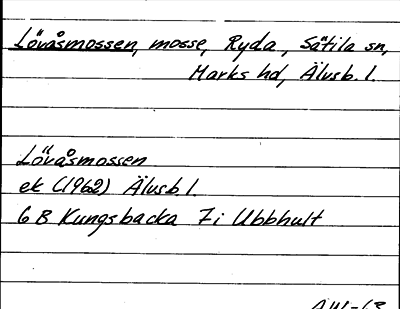 Lövåsmossen, mosse, Ryda, Sätila sn,
Marks hd, Älvsb. l.
Lövåsmossen
ek (1962) Älvsb l.
6 B Kungsbacka 7 i Ubbhult